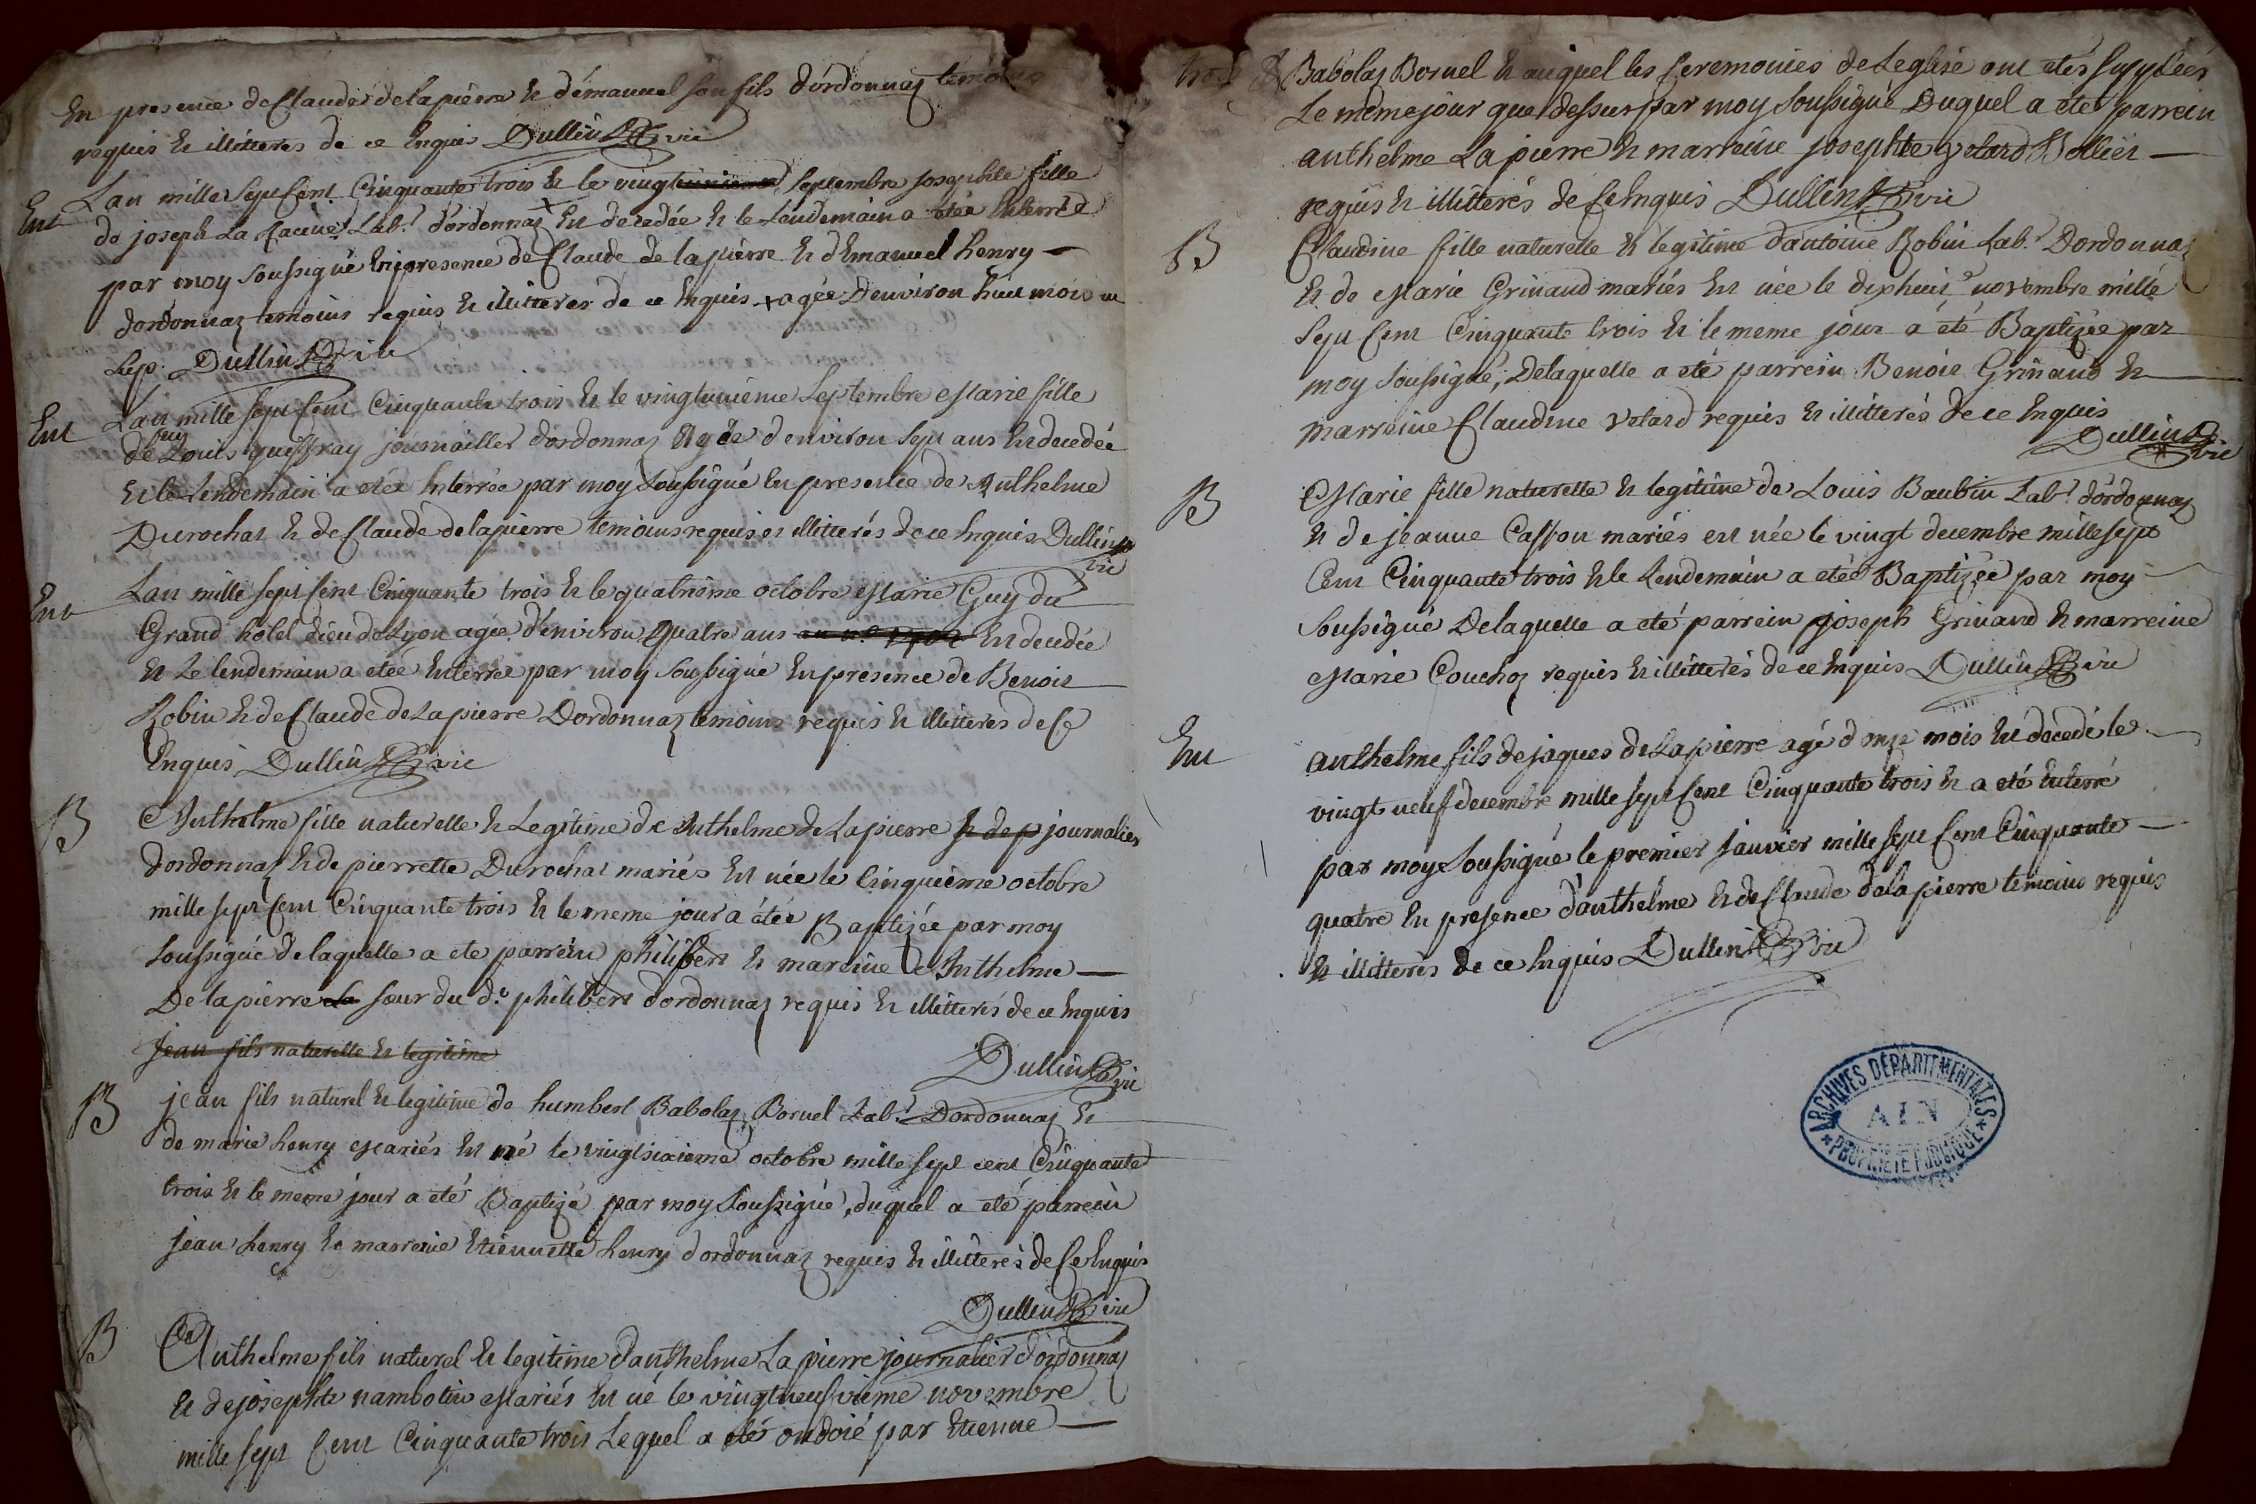 En presence de Claude delapierre et démanuel son fils d'ordonnaz temoins
requis et illitteres de ce Enquis Dullin vic
Ent
Lan mille sept Cent Cinquante trois et le vingt septembre josephte fille
de joseph La Lab.r d'ordonnaz + est decedée et le Lendemain a etée Enterrée
par moy soussigné En presence de Claude de lapierre et d'Emanuel henry
dordonnaz temoins requis et illitteres de ce Enquis + agée Denviron huit mois
Dullin vic
Ent
Lan mille sept Cent Cinquante trois et le vingtunieme Septembre Marie fille
de feu Louis journallier dordonnaz Agée d'environ sept ans est decedée
et le Lendemain a etée Enterrée par moy soussigné En presence de Anthelme
Durochat et de Claude delapierre temoins requis et illitterés de ce Enquis Dullin
vic
Ent
Lan mille sept Cent Cinquante trois et le quatrieme octobre Marie Guy du
Grand hotel dieu de Lyon agée d'environ quatre ans est decedée
et Le lendemain a etée Enterrée par moy soussigné En presence de Benoit
Robin et de Claude de Lapierre Dordonnaz temoins requis et illitteres de Ce
Enquis Dullin vic
B
Anthelme fille naturelle et Legitime de Anthelme de Lapierre et de p journalier
dordonnaz et de pierrette Durochat mariés est née le Cinquième octobre
mille sept Cent Cinquante trois et le meme jour a étée Baptizée par moy
soussigné de laquelle a ete parrein philibert et mareine Anthelme
De lapierre sœur du d.t philibert dordonnaz requis et illitterés de ce Enquis
Jean fils naturelle et legitime
Dullin vic
B
jean fils naturel et legitime de humbert Babolaz Bornel Lab.r Dordonnaz et
de marie henry Mariés est né le vingtsixieme octobre mille sept cent Cinquante
trois et le meme jour a eté Baptizé par moy soussigné, duquel a eté parrein
jean henry et marreine Etiennette henry d'ordonnaz requis et illitterés de Ce Enquis
Dullin vic
B
Anthelme fils naturel et legitime d'anthelme Lapierre journalier d'ordonnaz
et de josephte nambotin Mariés est né le vingtneufvieme novembre
mille sept Cent Cinquante trois Lequel a eté ondoié par Etienne
Babolaz Bornel et auquel les Ceremonies de Leglise ont etés supplées
Le meme jour que dessus par moy soussigné Duquel a eté parrein
anthelme Lapierre et marreine josephte Bollier
requis et illitterés de Ce Enquis Dullin vic
B
Claudine fille naturelle et legitime d'antoine Robin Lab.r Dordonnaz
et de Marie Grinand mariés est née le dixhuit novembre mille
sept Cent Cinquante trois et le meme jour a été Baptizée par
moy soussigné, Delaquelle a eté parrein Benoit Grinand et
marreine Claudine Votard requis et illitterés de ce Enquis
Dullin vic
B
Marie fille naturelle et legitime de Louis Baubin Lab.r d'ordonnaz
et de jeanne Casson mariés est née le vingt decembre mille sept
Cent Cinquante trois et le Lendemain a etée Baptizée par moy
soussigné Delaquelle a eté parrein joseph Grinand et marreine
Marie Couchoz requis et illitterés de ce Enquis Dullin vic
Ent
anthelme fils de jaques de Lapierre agé d'onze mois est décedé le
vingt neuf decembre mille sept Cent Cinquante trois et a eté Enterré
par moy soussigné le premier janvier mille sept Cent Cinquante
quatre En presence d'anthelme et de Claude delapierre temoins requis
et illitterés de ce Enquis Dullin vic
ARCHIVES DÉPARTEMENTALES
AIN
* PROPRIÉTÉ PUBLIQUE *